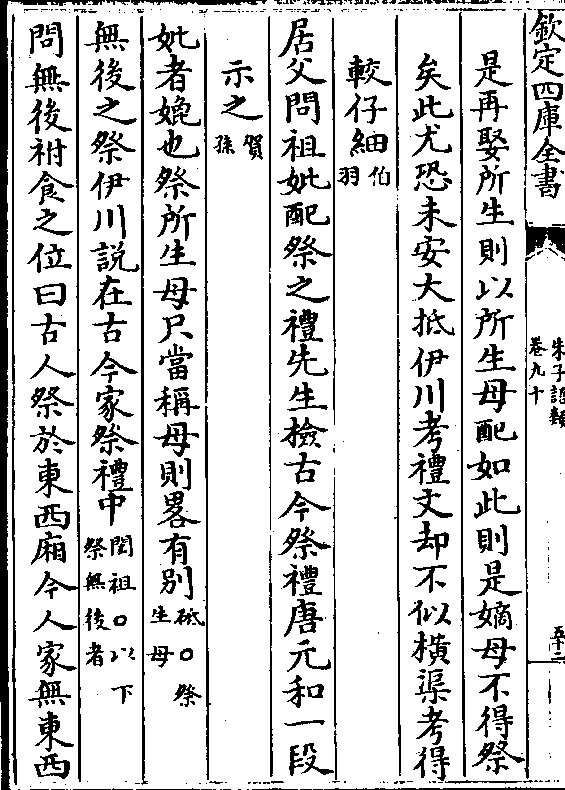 欽定四庫全書
朱子語類
卷九十
五十二
是再娶所生則以所生母配如此則是嫡母不得祭
矣此尤恐未安大抵伊川考禮文却不似横渠考得
較仔細伯羽
居父問祖妣配祭之禮先生檢古今祭禮唐元和一段
示之賀孫
妣者媲也祭所生母只當稱母則畧有别砥○祭生母
無後之祭伊川說在古今家祭禮中閎祖○以下祭無後者
問無後祔食之位曰古人祭於東西廂今人家無東西